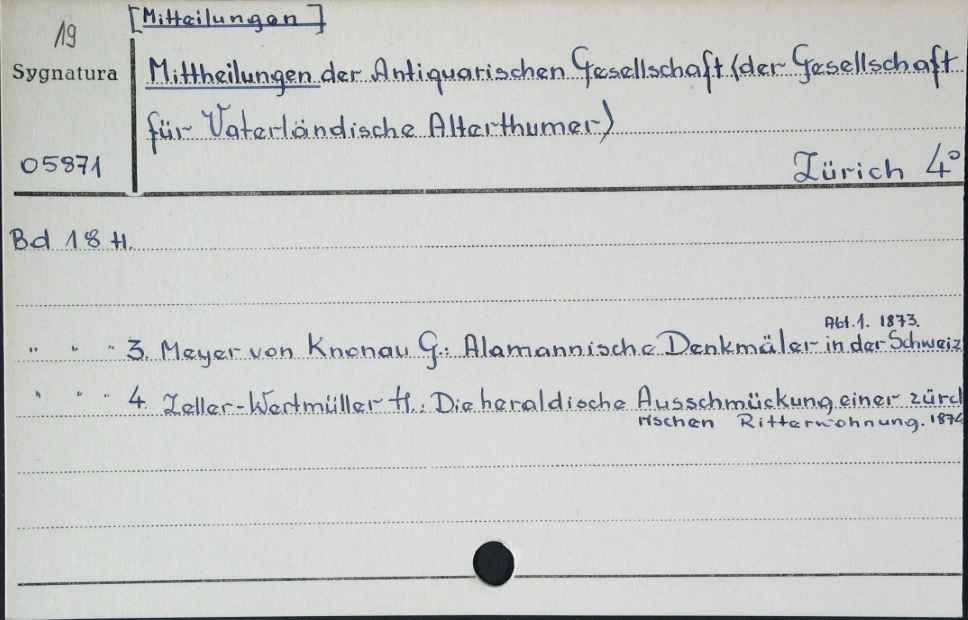 19
[Mitteilungen]
Sygnatura
Mittheilungen der Antiquarischen Gesellschaft (der Gesellschaft
für Vaterländische Alterthumer)
05871
Zürich 4°
Bd 18 H.
Abt. 1. 1873.
" " " 3. Meyer von Knonau G.: Alamannische Denkmäler in der Schweiz
" " " 4. Zeller-Werdmüller H.: Die heraldische Ausschmückung einer zürch
rischen Ritterwohnung. 1874